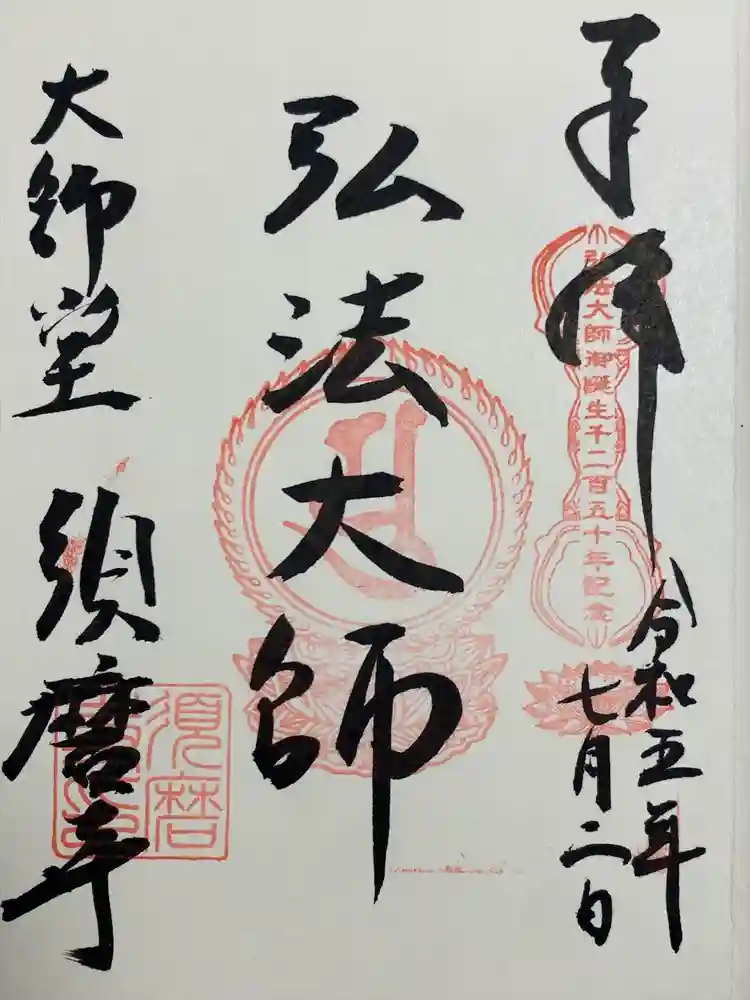 奉拝
弘法大師御誕生千二百五十年記念
令和五年
七月二日
弘法大師
大師堂 須磨寺
須磨